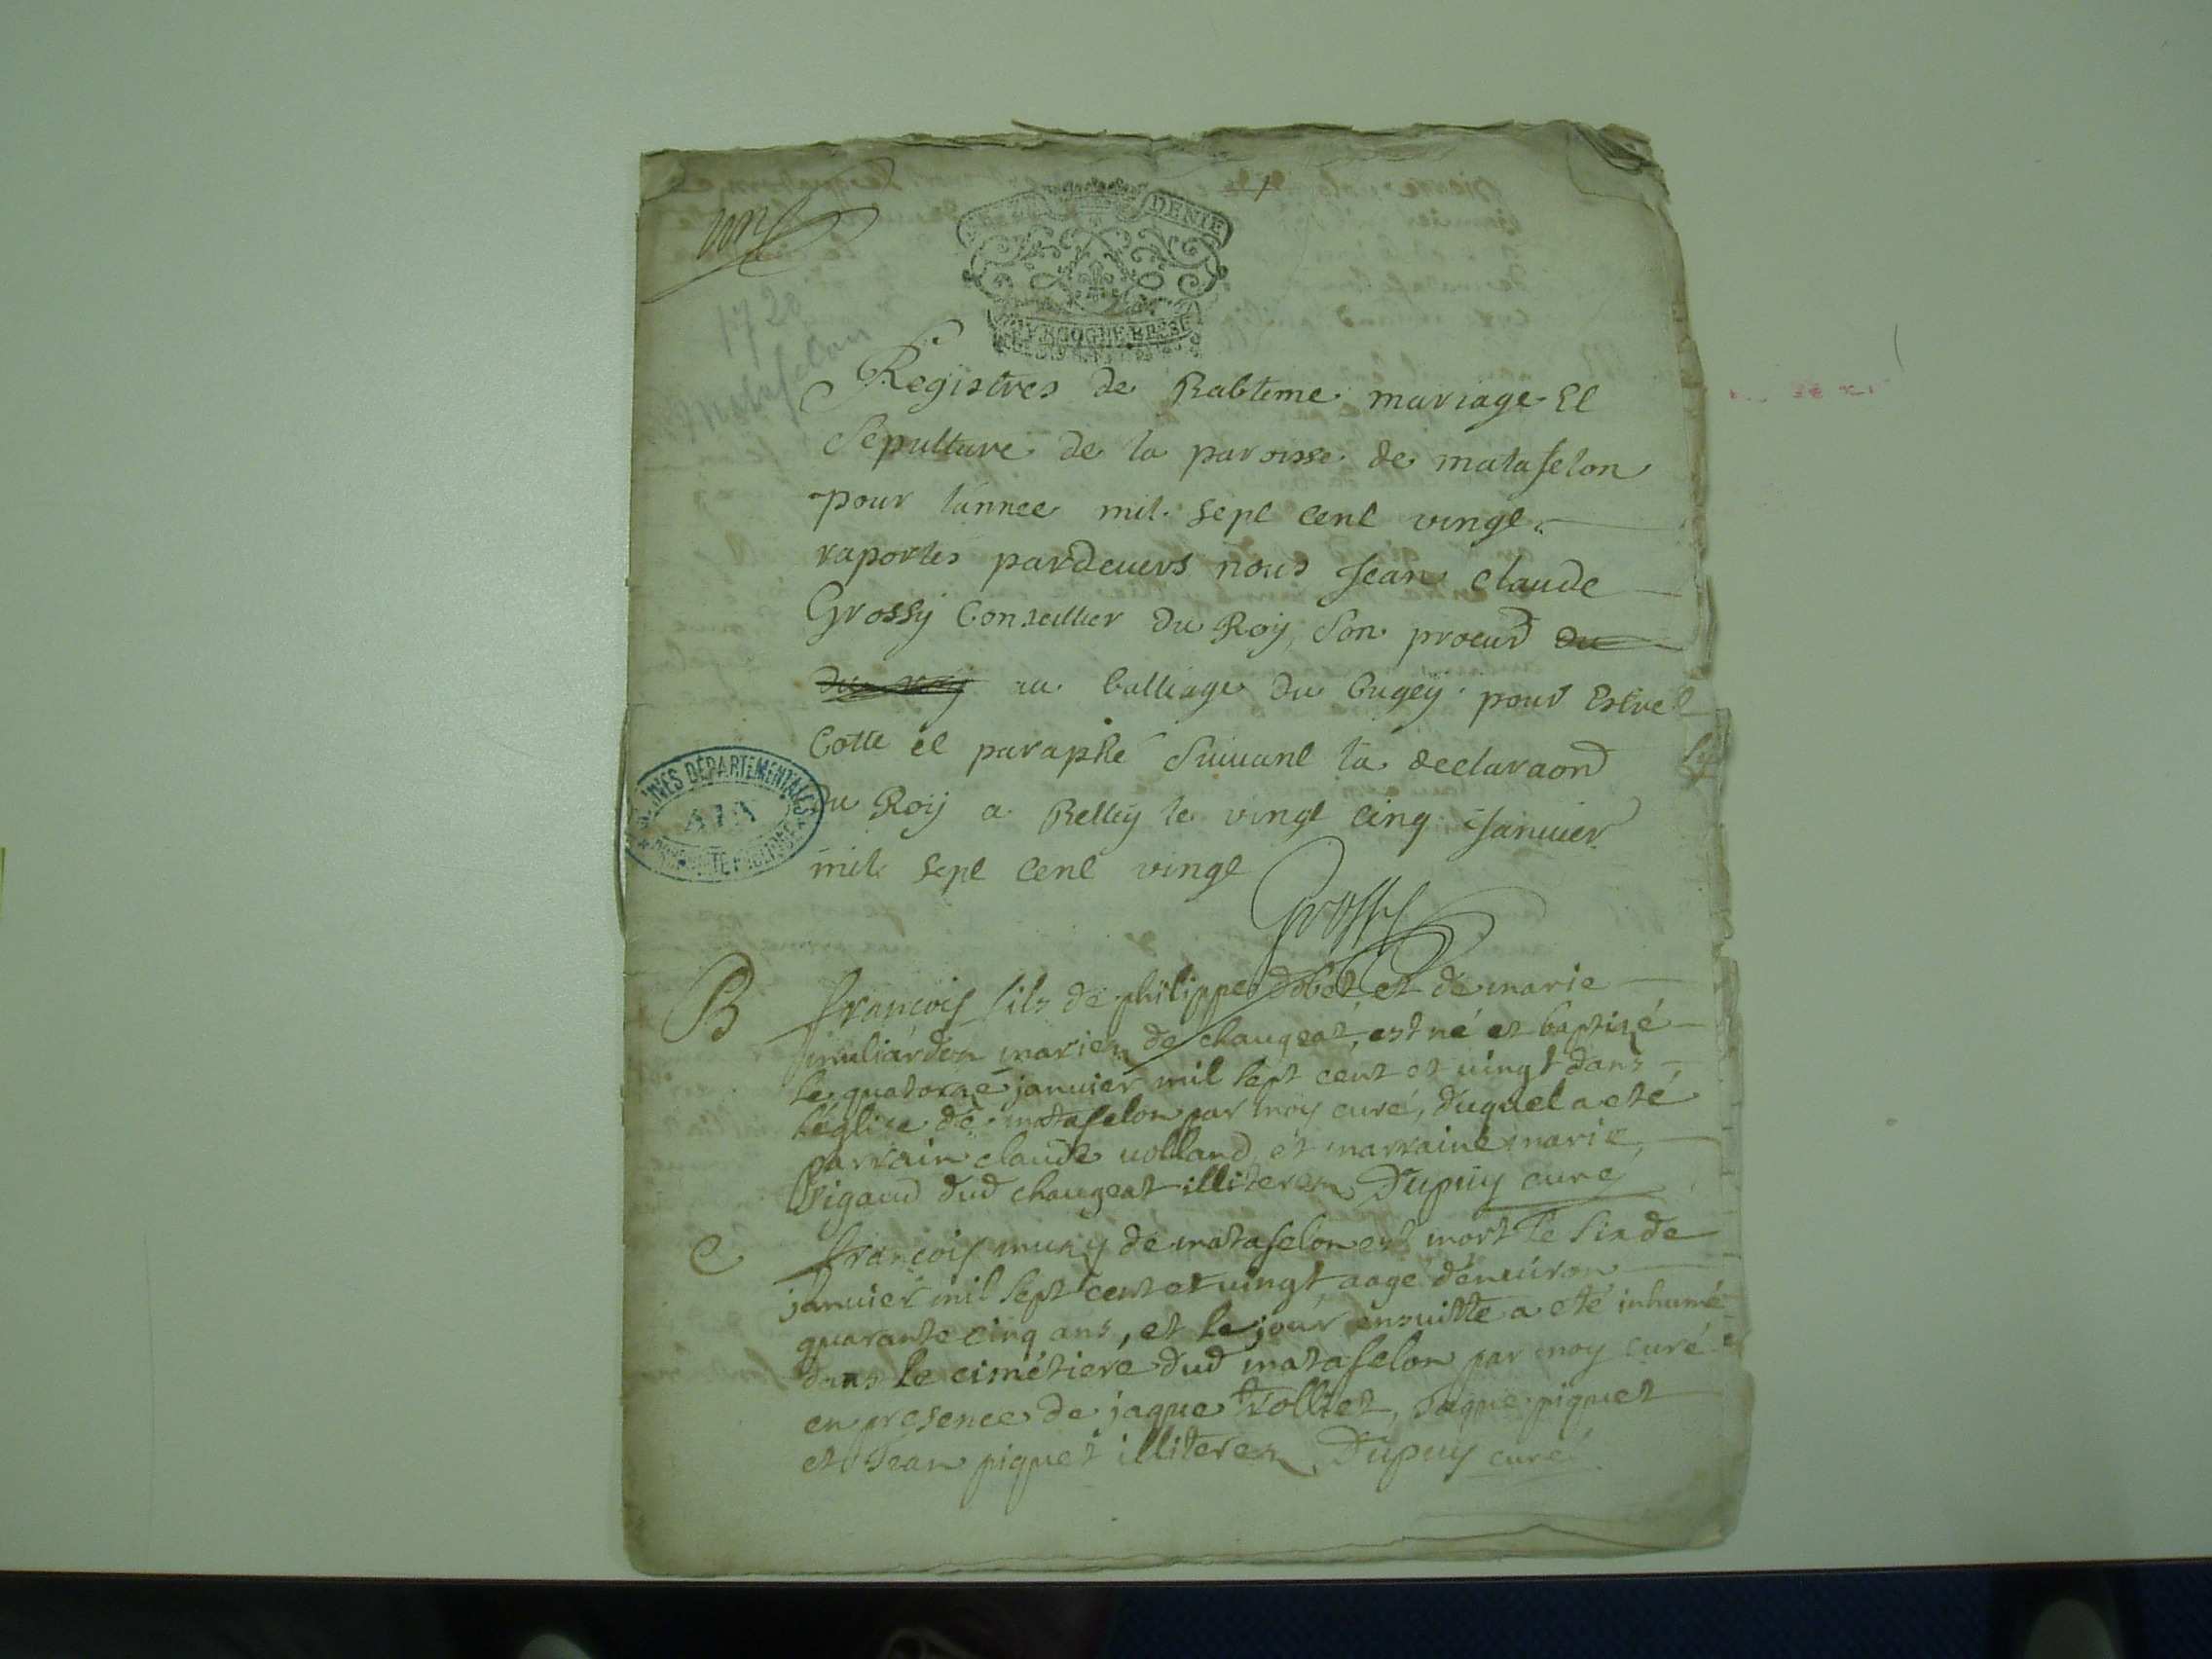 DENIE
1720
Matafelon
Registres de Babteme mariage Et
Sepulture de la paroisse de matafelon
pour lannee mil sept cent vingt
raportes pardeuers nous Jean claude
Grossy Conseillier du Roy, Son procur du
du roy au balliage du bugey pour Estre
Cotte et paraphé Suiuant la declaraon
du Roy a Belley le vingt cinq Januier
mil sept cent vingt
Grossy
ARCHIVES DÉPARTEMENTALES
AIN
B françois fils de philippe dobet et de marie
mariez de changeat, est né et baptizé
le quatorze januier mil sept cent et uingt dans
l'église de matafelon par moy curé, duquel a eté
parrain claude uolland et marraine marie
Rigaud dud changeat illiterez Dupuy curé
françois muzy de matafelon est mort le six de
januier mil sept cent et uingt aagé d'enuiron
quarante cinq ans, et le jour ensuitte a eté inhumé
dans le cimétiere dud matafelon par moy curé
en presence de jaque Volliet, Jaque piquet
et Jean piquet illiterez Dupuy curé